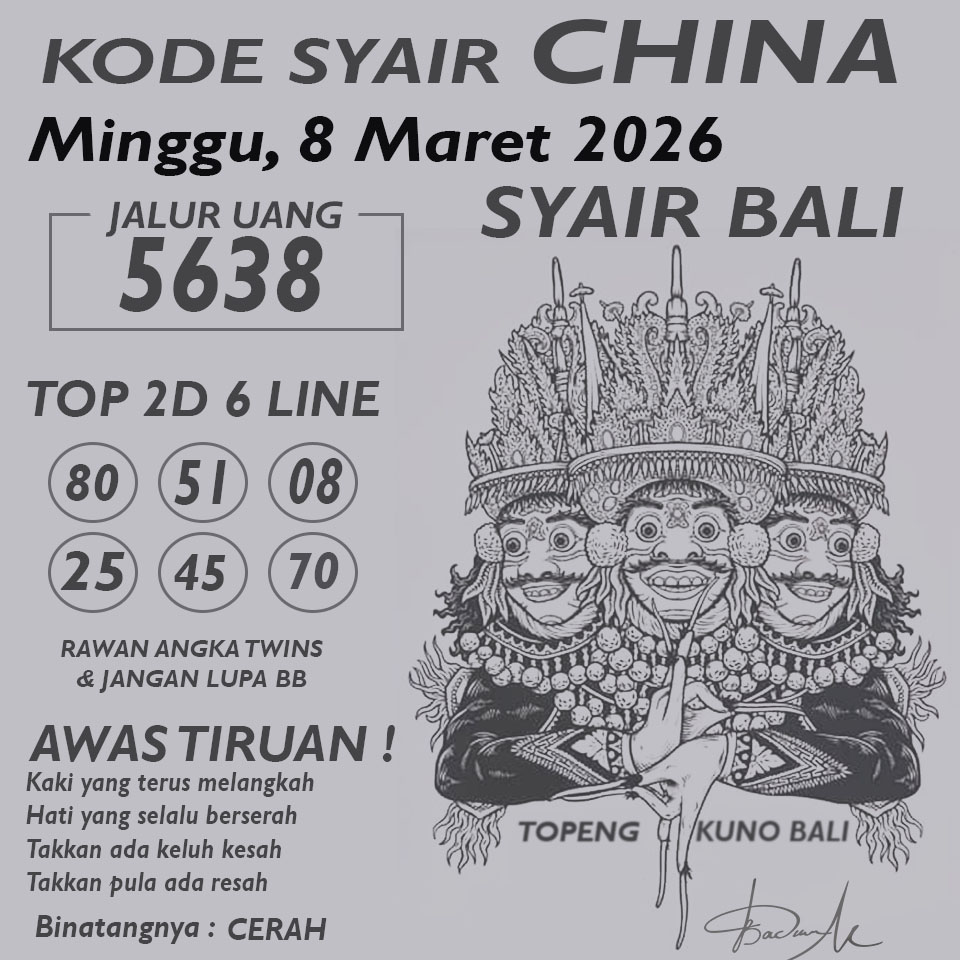 KODE SYAIR CHINA
Minggu, 8 Maret 2026
SYAIR BALI
JALUR UANG
5638
TOP 2D 6 LINE
80 51 08
25 45 70
RAWAN ANGKA TWINS
& JANGAN LUPA BB
AWAS TIRUAN !
Kaki yang terus melangkah
Hati yang selalu berserah
Takkan ada keluh kesah
Takkan pula ada resah
Binatangnya : CERAH
TOPENG KUNO BALI